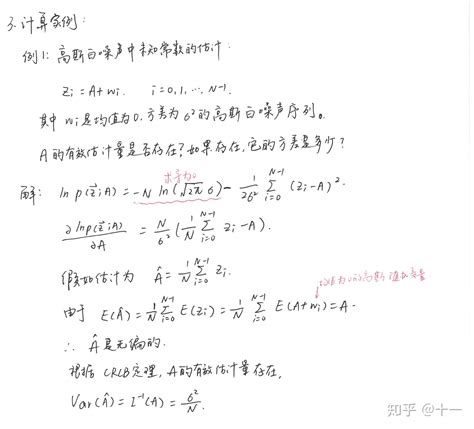 3. 计算案例:
例1: 高斯白噪声中未知常数的估计.
Zi = A + wi. i = 0, 1, ⋯, N-1.
其中 wi 是均值为 0, 方差为 σ² 的高斯白噪声序列。
A 的有效估计量是否存在? 如果存在, 它的方差是多少?
求导为0
解: ln p(z⃗; A) = -N ln(√2π σ) - 1/2σ² ∑_{i=0}^{N-1} (Zi - A)².
∂ lnp(z⃗;A)/∂A = N/σ² (1/N ∑_{i=0}^{N-1} Zi - A).
假如估计为 Â = 1/N ∑_{i=0}^{N-1} Zi.
由于 E(Â) = 1/N ∑_{i=0}^{N-1} E(Zi) = 1/N ∑_{i=0}^{N-1} E(A + wi) = A.
∴ Â 是无偏的.
根据 CRLB 定理, A 的有效估计量存在,
Var(Â) = I⁻¹(A) = σ²/N.
知乎 @十一